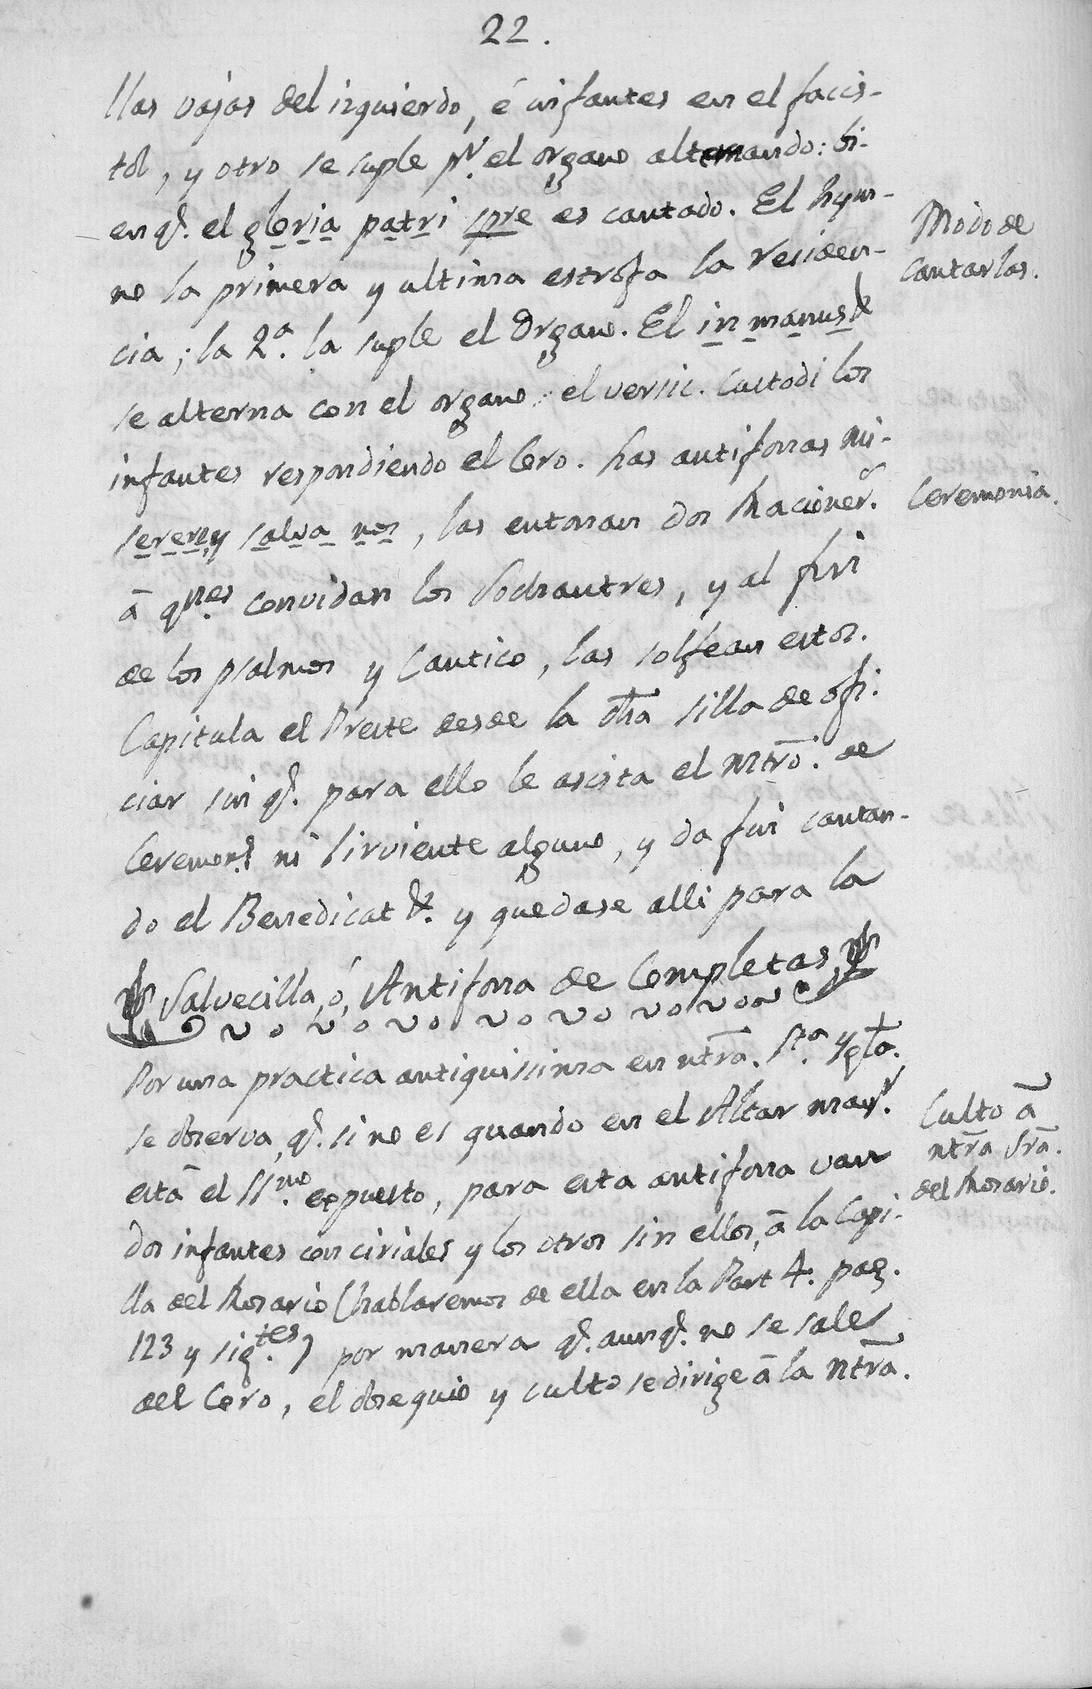 22.
llas vajas del izquierdo, é infantes en el facis-
tol, y otro se suple pr. el organo alternando: bi-
en q.e el gloria patri spre es cantado. El hym-
Modo de
cantarlas.
no la primera y ultima estrofa la residen-
cia; la 2.a la suple el Organo. El in manus &
se alterna con el organo: el versic. Custodi los
infantes respondiendo el Coro. Las antifonas Mi-
serere, y salva nos, las entonan dos Racioner.s
Ceremonia.
â q.nes convidan los Sochantres, y al fin
de los psalmos y Cantico, las solfean estos.
Capitula el Preste desde la dha silla de ofi-
ciar sin q.e para ello le asista el Mtrô. de
Ceremon.s ni sirviente alguno, y da fin cantan-
do el Benedicat &. y quedase alli para la
Salvecilla, ó, Antifona de Completas,
Por una practica antiquissima en ntra. S.ta Ygla.
se observa, q.e si no es quando en el Altar may.r
Culto â
ntra Sra.
del Rosario.
està el SS.mo expuesto, para esta antifona van
dos infantes con ciriales y los otros sin ellos, â la Capi-
lla del Rosario (hablaremos de ella en la Part 4.a pag.
123 y sig.tes) por manera q.e aunq.e no se sale
del Coro, el obsequio y culto se dirige â la ntra.